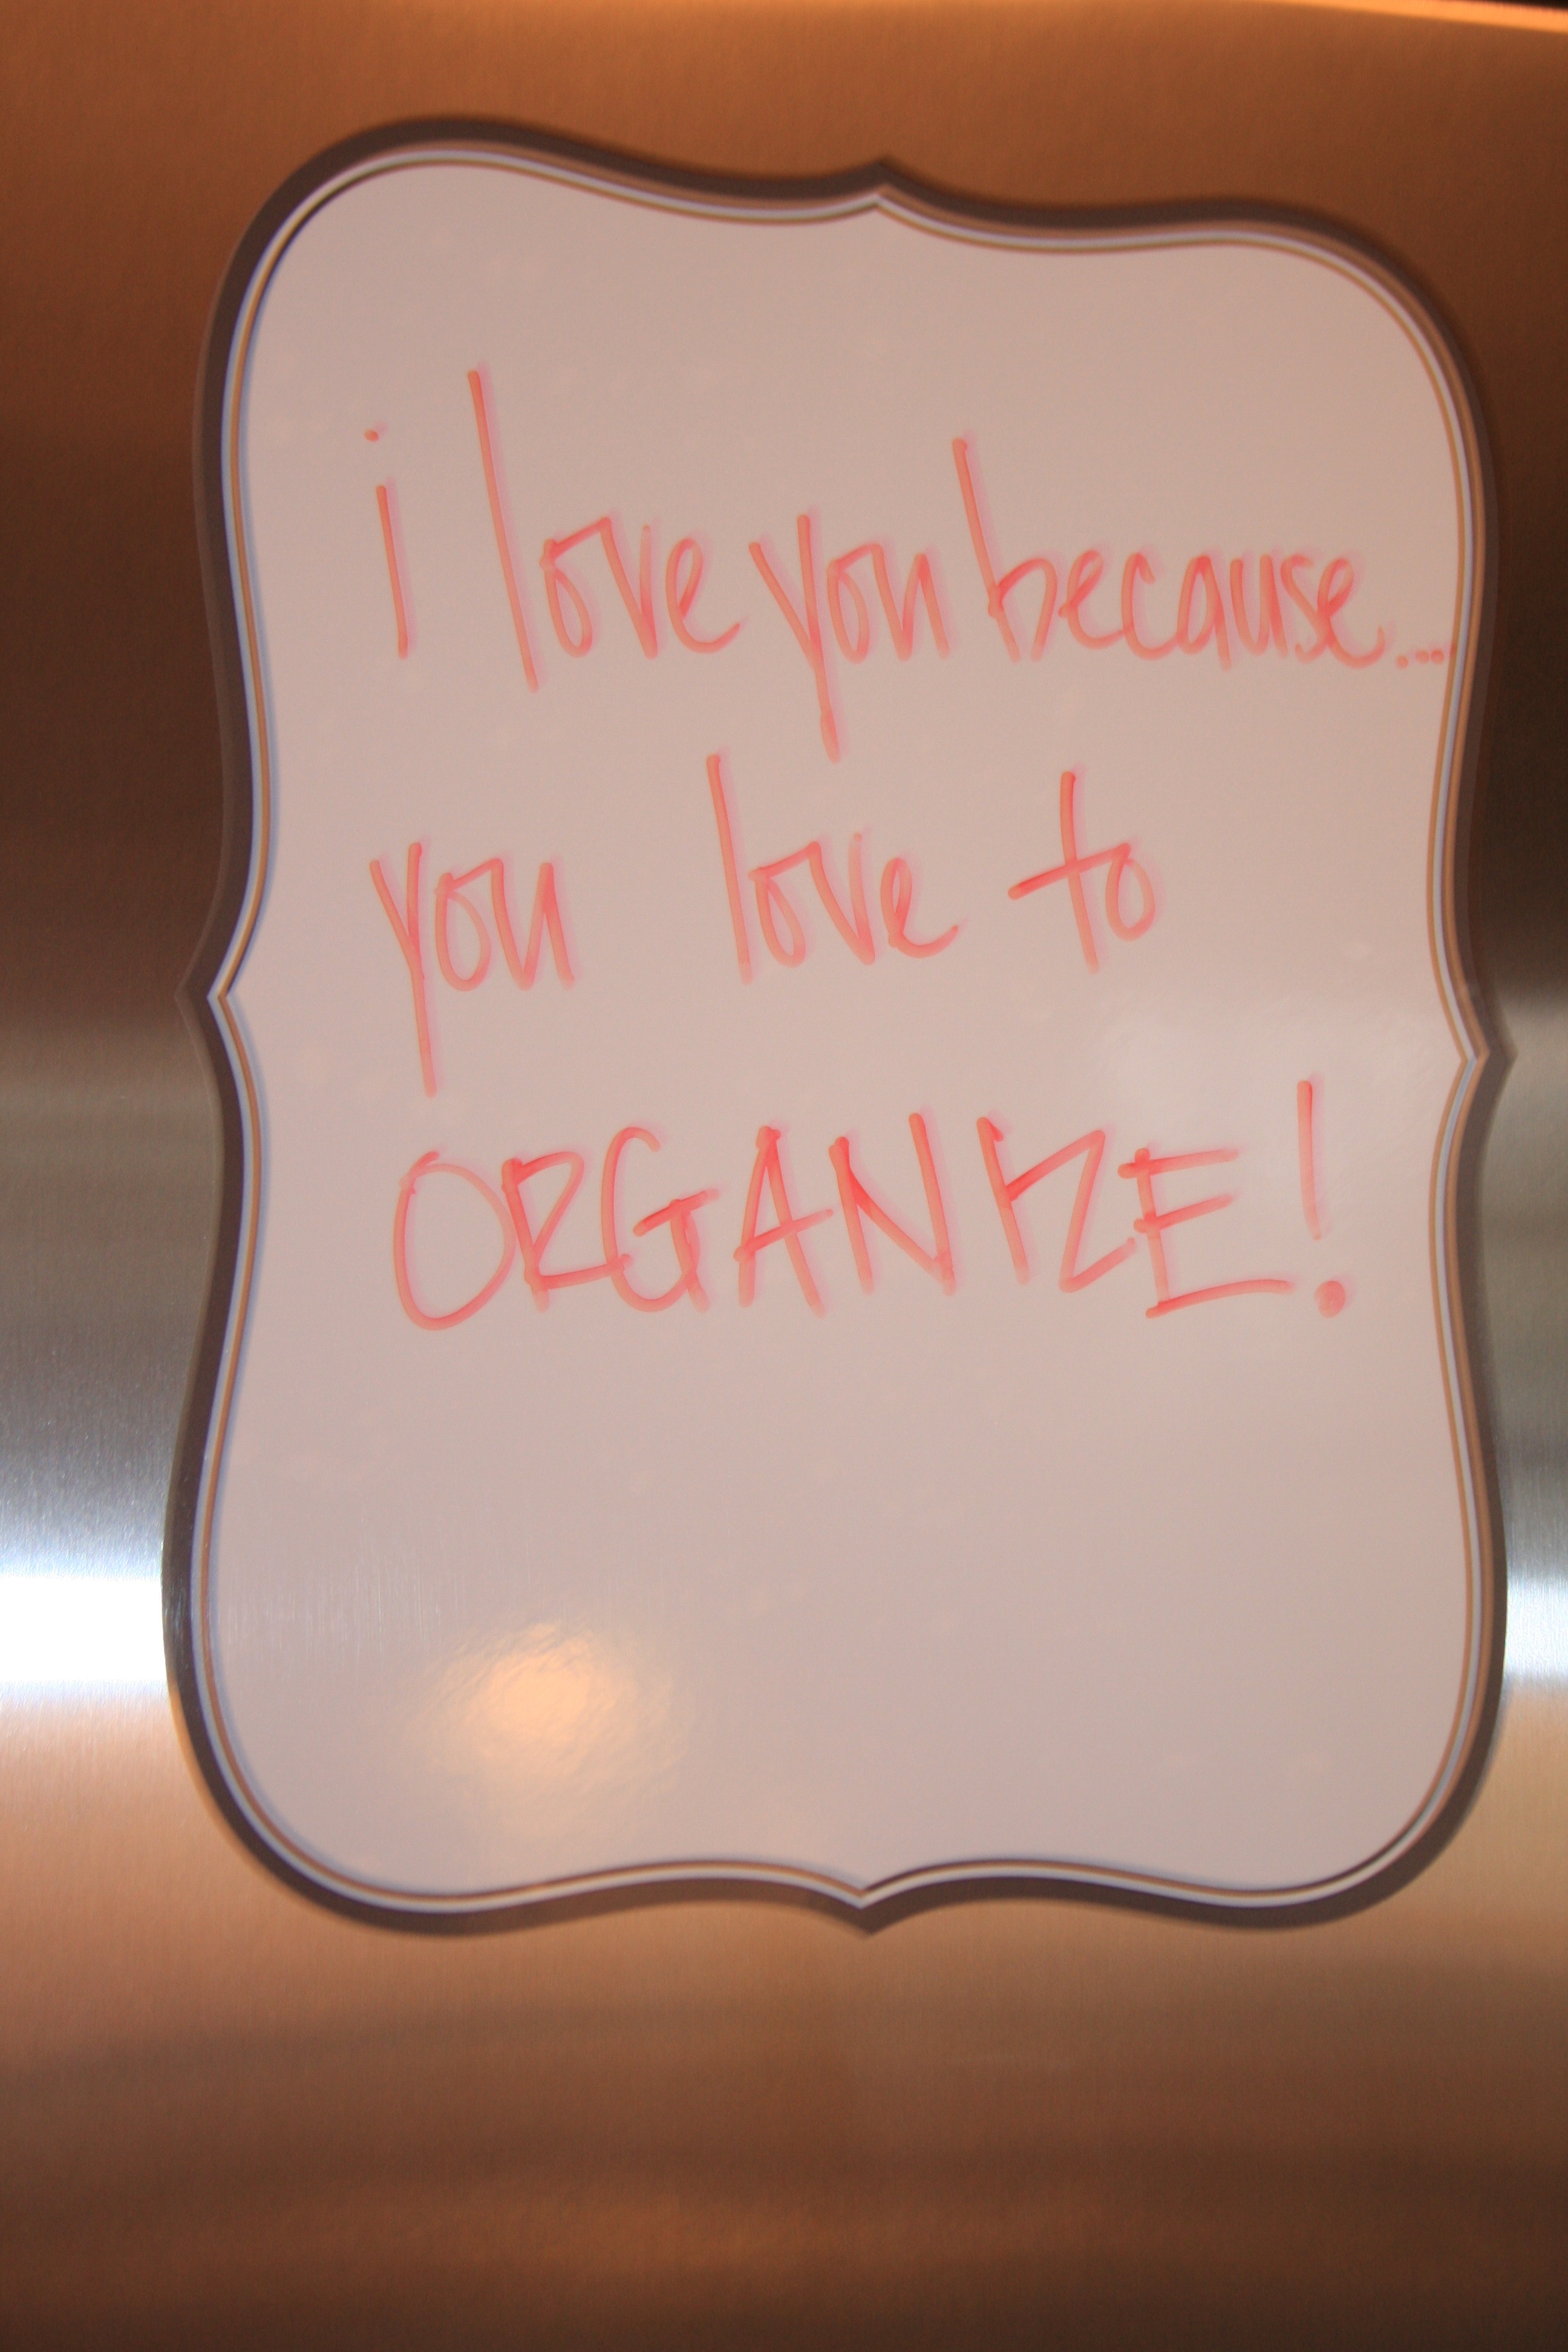 i love you because...
you love to
ORGANIZE!